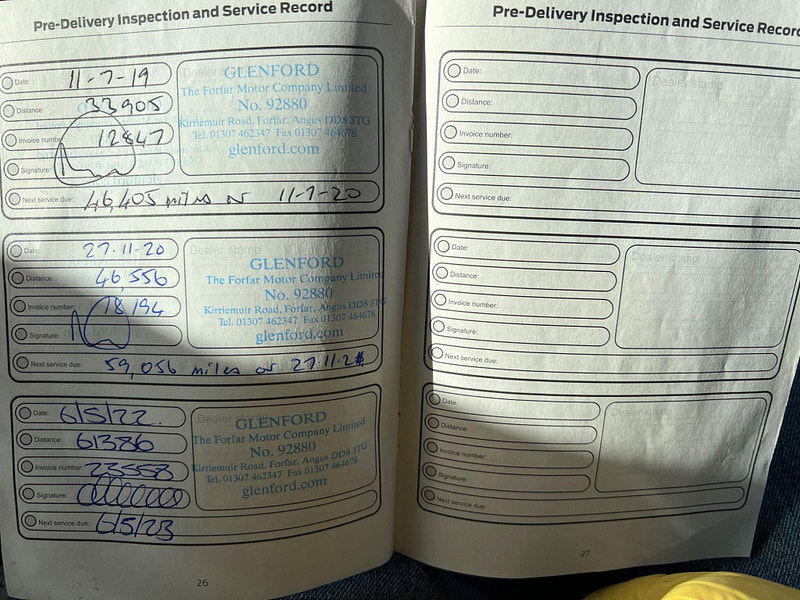 Pre-Delivery Inspection and Service Record
Date: 11-7-19
Distance: 33905
Invoice number: 12847
Signature:
Next service due: 46,405 miles or 11-7-20
Dealer stamp
GLENFORD
The Forfar Motor Company Limited
No. 92880
Kirriemuir Road, Forfar, Angus DD8 3TG
Tel. 01307 462347 Fax 01307 464678
glenford.com
Date: 27.11.20
Distance: 46,556
Invoice number: 18,194
Signature:
Next service due: 59,056 miles or 27.11.21
Dealer stamp
GLENFORD
The Forfar Motor Company Limited
No. 92880
Kirriemuir Road, Forfar, Angus DD8 3TG
Tel. 01307 462347 Fax 01307 464678
glenford.com
Date: 6/5/22.
Distance: 61386
Invoice number: 23558
Signature:
Next service due: 6/5/23
Dealer stamp
GLENFORD
The Forfar Motor Company Limited
No. 92880
Kirriemuir Road, Forfar, Angus DD8 3TG
Tel. 01307 462347 Fax 01307 464678
glenford.com
26
Pre-Delivery Inspection and Service Record
Date:
Distance:
Invoice number:
Signature:
Next service due:
Dealer stamp
Date:
Distance:
Invoice number:
Signature:
Next service due:
Dealer stamp
Date:
Distance:
Invoice number:
Signature:
Next service due:
Dealer stamp
27